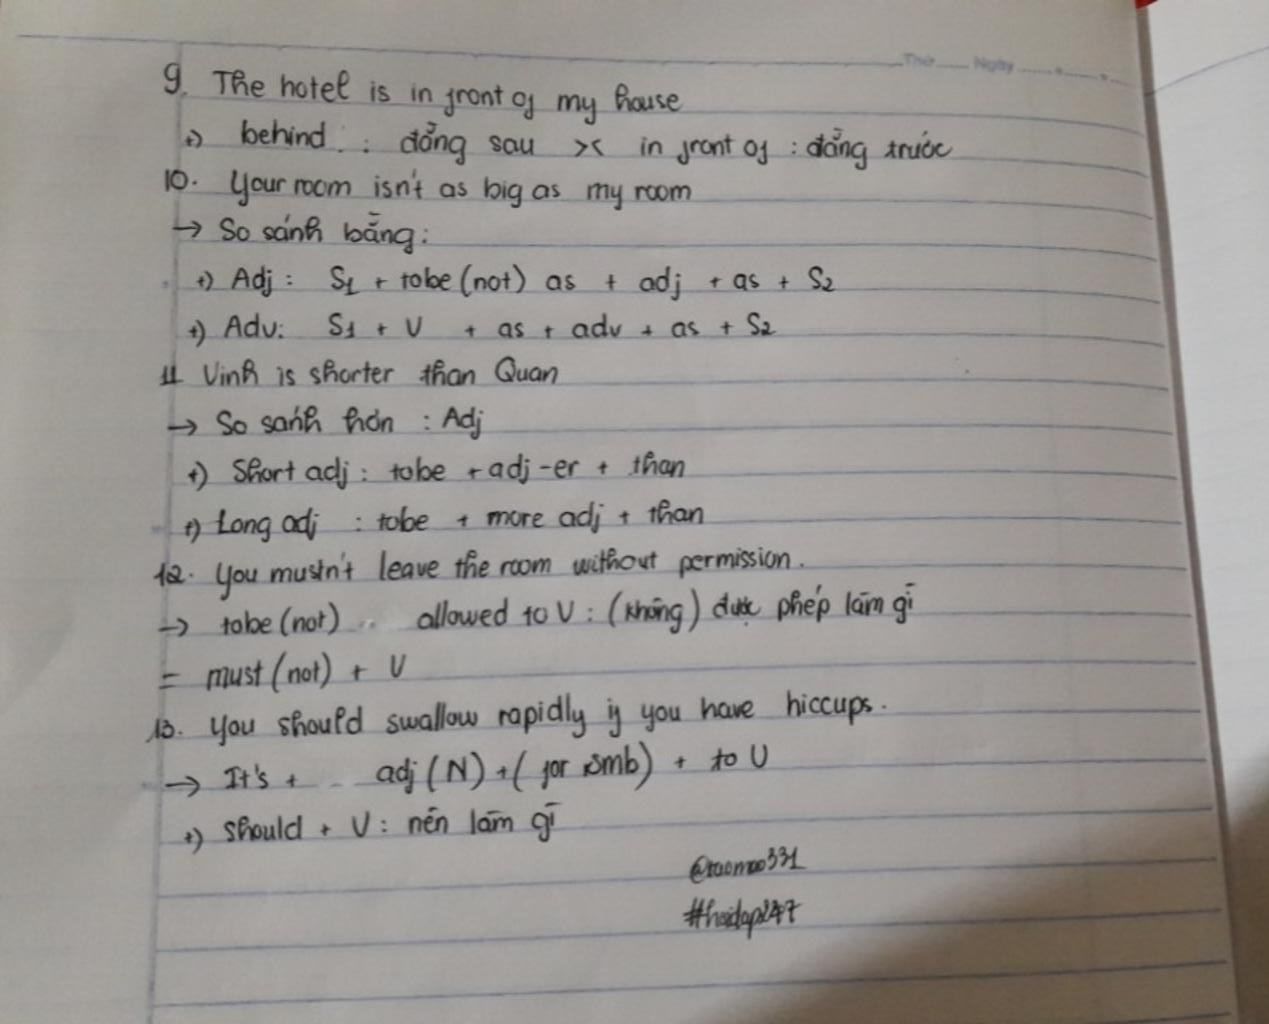 Thứ Ngày
9. The hotel is in front of my house
+) behind : đằng sau >< in front of : đằng trước
10. Your room isn't as big as my room
→ So sánh bằng:
+) Adj : S1 + tobe (not) as + adj + as + S2
+) Adv: S1 + V + as + adv + as + S2
11 Vinh is shorter than Quan
→ So sánh hơn : Adj
+) Short adj : tobe + adj-er + than
+) Long adj : tobe + more adj + than
12. You mustn't leave the room without permission.
→ tobe (not) allowed to V : (không) được phép làm gì
= must (not) + V
13. You should swallow rapidly if you have hiccups.
→ It's + adj (N) + (for smb) + to V
+) should + V : nên làm gì
#hoidap247